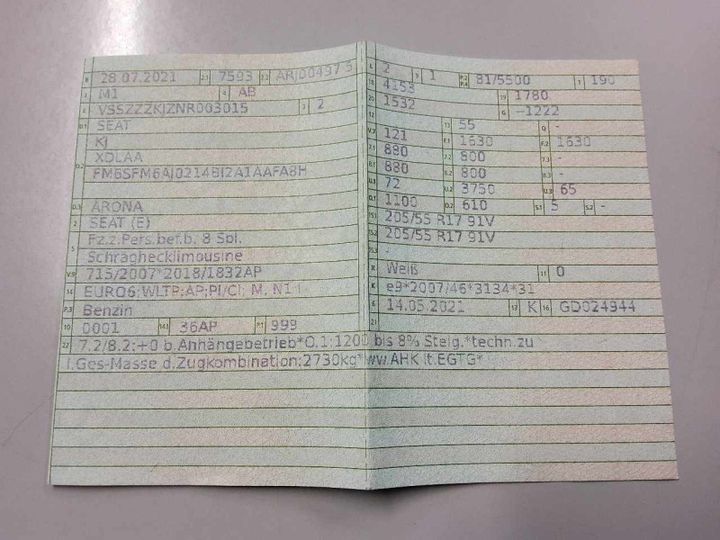 B 28.07.2021 2.1 7593 2.2 ARJ00497 5
J M1 4 AB
E VSSZZZKJZNR003015 3 2
D.1 SEAT
KJ
D.2 XDLAA
FM6SFM6AJ0214BI2A1AAFA8H
D.3 ARONA
2 SEAT (E)
5 Fz.z.Pers.bef.b. 8 Spl.
Schräghecklimousine
V.9 715/2007*2018/1832AP
14 EURO6;WLTP;AP;PI/CI; M, N1 I
P.3 Benzin
10 0001 14.1 36AP P.1 999
22 7.2/8.2:+0 b.Anhängebetrieb*O.1:1200 bis 8% Steig.*techn.zu
l.Ges-Masse d.Zugkombination:2730kg*ww.AHK lt.EGTG*
L 2 9 1 P.2 P.4 81/5500 T 190
18 4153
19 1780
20 1532 G -1222
12
13 55 Q -
V.7 121 F.1 1630 F.2 1630
7.1 880 7.2 800 7.3 -
8.1 880 8.2 800 8.3 -
U.1 72 U.2 3750 U.3 65
O.1 1100 O.2 610 S.1 5 S.2 -
15.1 205/55 R17 91V
15.2 205/55 R17 91V
15.3 -
R Weiß 11 0
K e9*2007/46*3134*31
6 14.05.2021 17 K 16 GD024944
21